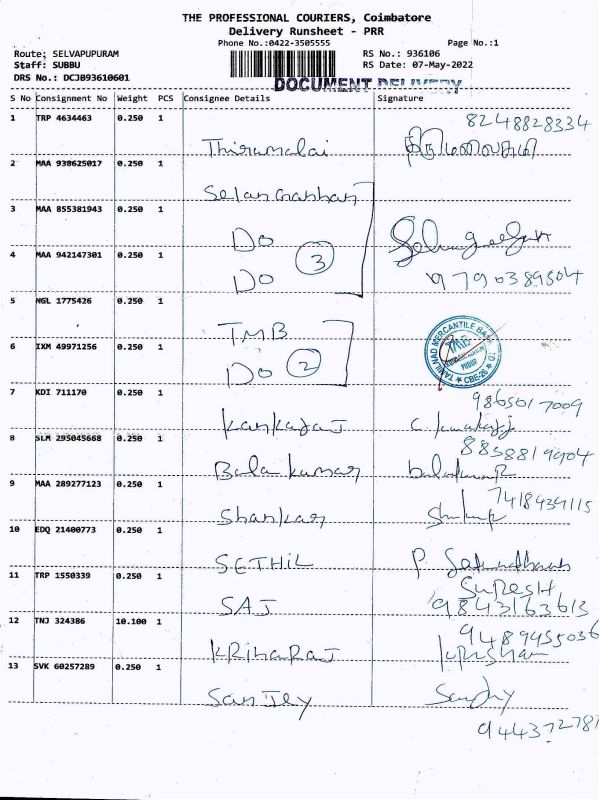 THE PROFESSIONAL COURIERS, Coimbatore
Delivery Runsheet - PRR
Phone No.:0422-3505555 Page No.:1
Route: SELVAPUPURAM RS No.: 936106
Staff: SUBBU RS Date: 07-May-2022
DRS No.: DCJB93610601
DOCUMENT DELIVERY
S No Consignment No Weight PCS Consignee Details Signature
1 TRP 4634463 0.250 1 8248828334
Thirumalai திருமலைசாமி
2 MAA 938625017 0.250 1
3 MAA 855381943 0.250 1
Do
4 MAA 942147301 0.250 1 3
Do 9790389504
5 NGL 1775426 0.250 1
TMB
6 IXM 49971256 0.250 1 TAMILNAD MERCANTILE BANK LTD. TMB CBE-26
Do 2
7 KDI 711170 0.250 1 9865017009
8 SLM 295045668 0.250 1 8858819904
Balakumar
9 MAA 289277123 0.250 1 7418439115
Shankar
10 EDQ 21400773 0.250 1
SETHIL
11 TRP 1550339 0.250 1 SURESH
SAJ 9843163613
12 TNJ 324386 10.100 1 9489955036
KRIHARAJ
13 SVK 60257289 0.250 1
SanJey Sanjey
944372781